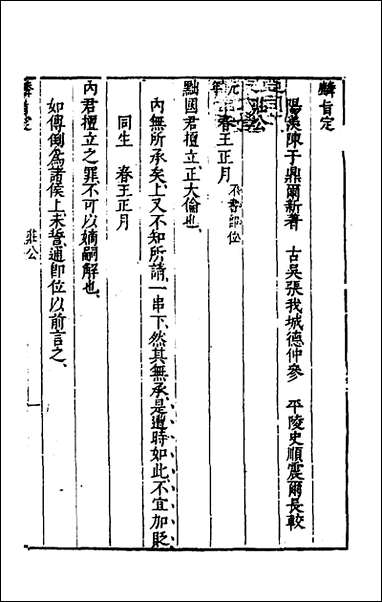 麟旨定
陽羨陳于鼎爾新著　古吳張我城德仲參　平陵史順震爾長較
莊公
元年
春王正月 不書即位
黜國君擅立正大倫也
內無所承矣上又不知所請一串下然其無承是遭時如此不宜加貶
同生　春王正月
內君擅立之罪不可以嫡嗣解也
如傳倒為諸侯上未嘗通即位以前言之
麟旨定
莊公
一